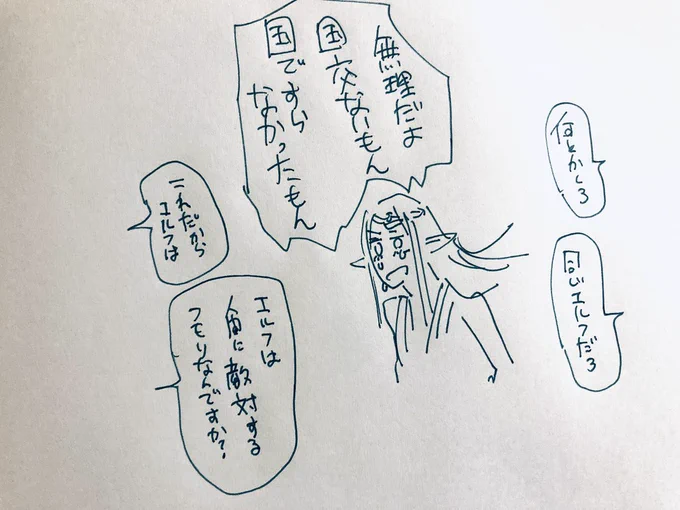 何とかしろ
同じエルフだろ
無理だよ
国交ないもん
国ですら
なかったもん
これだから
エルフは
エルフは
人間に敵対する
つもりなんですか?